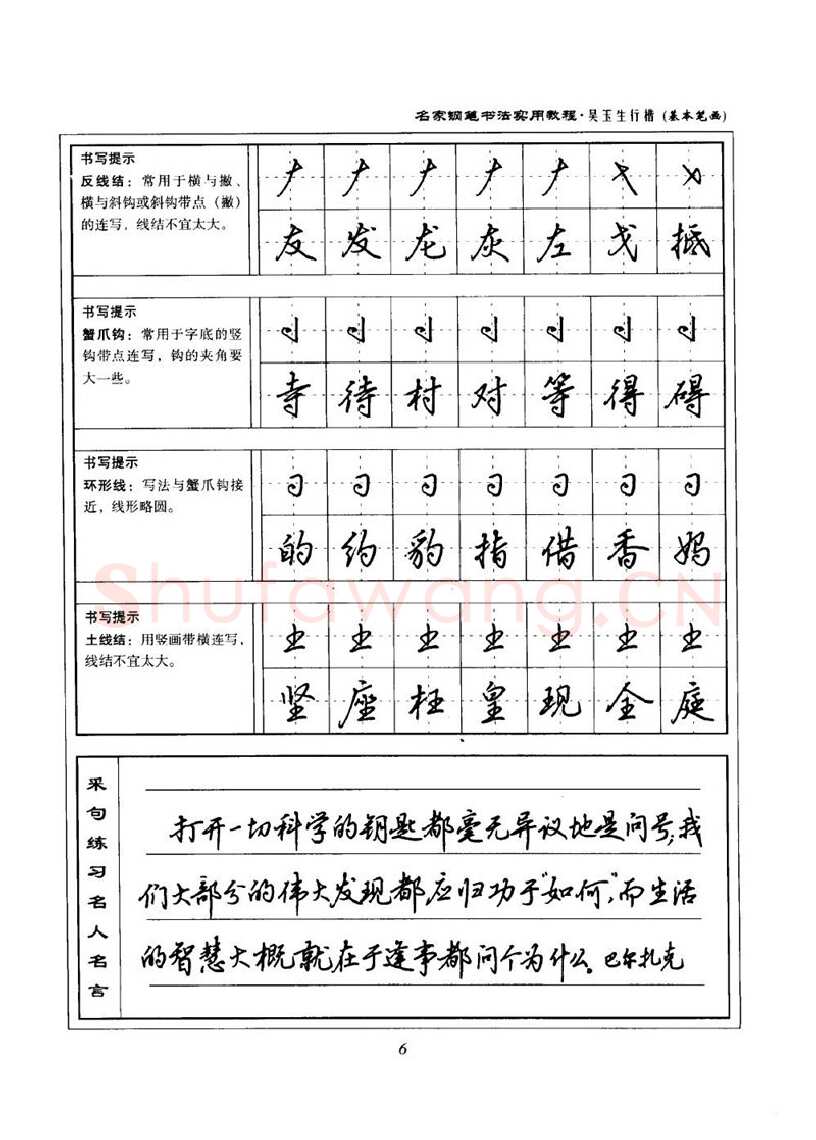 名家钢笔书法实用教程·吴玉生行楷(基本笔画)
书写提示
反线结：常用于横与撇、
横与斜钩或斜钩带点（撇）
的连写，线结不宜太大。
友 发 龙 灰 左 戈 抵
书写提示
蟹爪钩：常用于字底的竖
钩带点连写，钩的夹角要
大一些。
寺 待 村 对 等 得 碍
书写提示
环形线：写法与蟹爪钩接
近，线形略圆。
的 约 豹 指 借 香 妈
Shufawang.CN
书写提示
土线结：用竖画带横连写，
线结不宜太大。
坚 座 枉 皇 现 全 庭
采句练习名人名言
打开一切科学的钥匙都毫无异议地是问号，我
们大部分的伟大发现都应归功于“如何”，而生活
的智慧大概就在于逢事都问个为什么。巴尔扎克
6